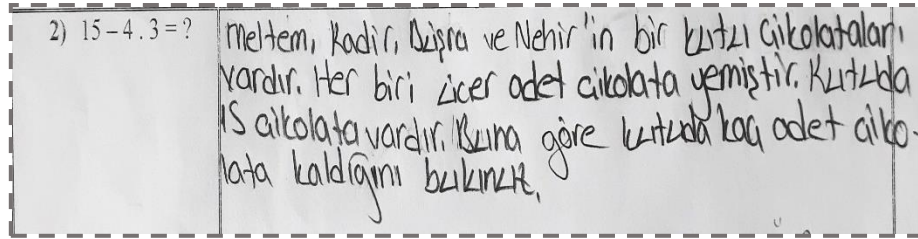 2) 15 – 4 . 3 = ?
Meltem, Kadir, Büşra ve Nehir'in bir kutu çikolataları
vardır. Her biri üçer adet çikolata yemiştir. Kutuda
15 çikolata vardır. Buna göre kutuda kaç adet çiko-
lata kaldığını bulunuz.